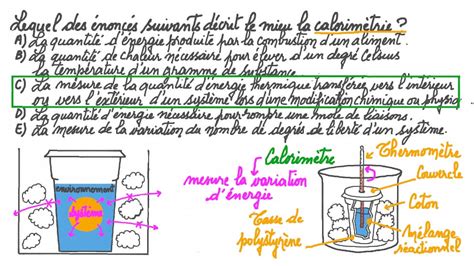 Lequel des énoncés suivants décrit le mieu la calorimétrie ?
A) La quantité d'énergie produite par la combustion d'un aliment.
B) La quantité de chaleur nécessaire pour élever d'un degré Celsius
la température d'un gramme de substance.
C) La mesure de la quantité d'énergie thermique transférée vers l'intérieur
ou vers l'extérieur d'un système lors d'une modification chimique ou physiq
D) La quantité d'énergie nécessaire pour rompre une mole de liaisons.
E) La mesure de la variation du nombre de degrés de liberté d'un système.
environnement
système
Calorimètre
mesure la variation
d'énergie
Tasse de
polystyrène
Thermomètre
Couvercle
Coton
Mélange
réactionnel